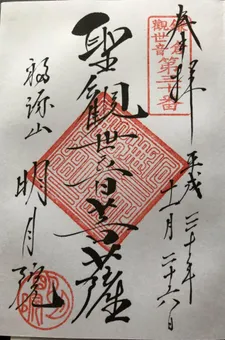 奉拝
鎌倉
観世音
第三十番
平成三十年
十一月二十六日
聖観世音菩薩
福源山
明月院